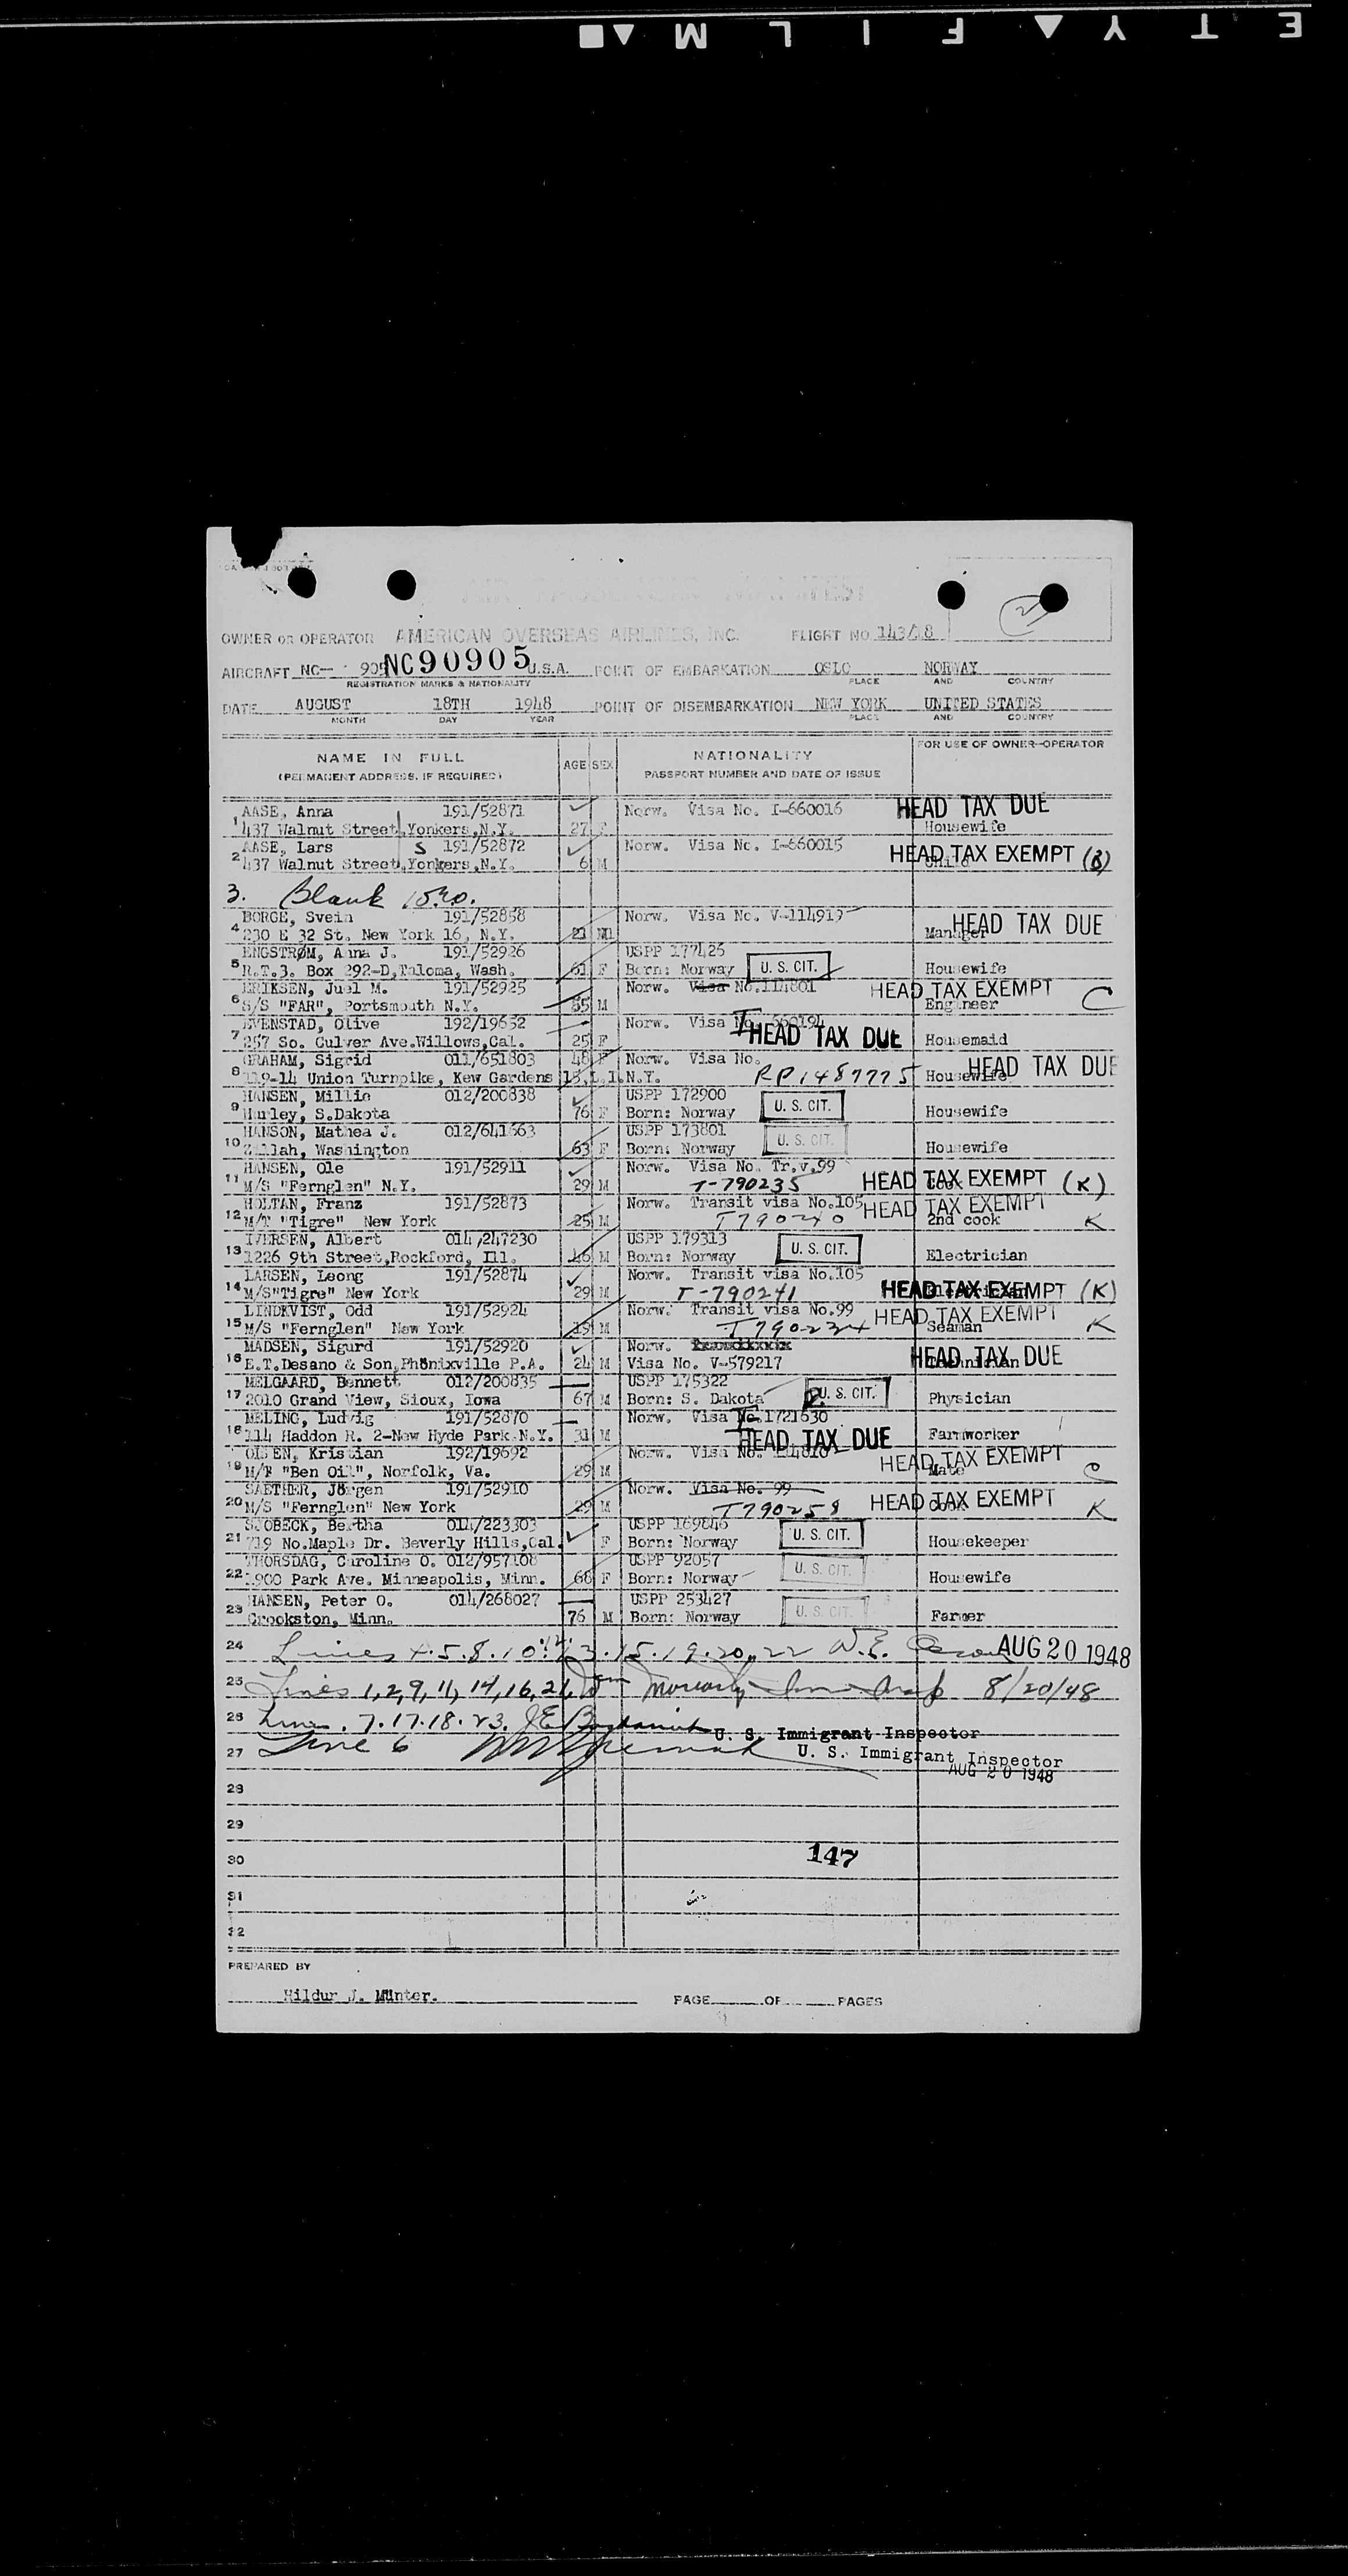 SAFETY FILM
OWNER OR OPERATOR AMERICAN OVERSEAS AIRLINES, INC. FLIGHT NO. 143/18
AIRCRAFT NC— 905 NC90905 U.S.A. POINT OF EMBARKATION OSLO NORWAY
REGISTRATION MARKS & NATIONALITY PLACE AND COUNTRY
DATE AUGUST 18TH 1948 POINT OF DISEMBARKATION NEW YORK UNITED STATES
MONTH DAY YEAR PLACE AND COUNTRY
NAME IN FULL AGE SEX NATIONALITY FOR USE OF OWNER-OPERATOR
(PERMANENT ADDRESS, IF REQUIRED) PASSPORT NUMBER AND DATE OF ISSUE
AASE, Anna 191/52871 Norw. Visa No. I-660016 HEAD TAX DUE
1 437 Walnut Street, Yonkers, N.Y. 27 F Housewife
AASE, Lars S 191/52872 Norw. Visa No. I-660015 HEAD TAX EXEMPT (B)
2 437 Walnut Street, Yonkers, N.Y. 6 M Child
3. Blank
BORGE, Svein 191/52858 Norw. Visa No. V-114919 HEAD TAX DUE
4 230 E 32 St. New York 16, N.Y. 21 M Manager
ENGSTRØM, Anna J. 191/52926 USPP 177426
5 R.T.3. Box 292-D, Taloma, Wash. 61 F Born: Norway U. S. CIT. Housewife
ERIKSEN, Juel M. 191/52925 Norw. Visa No.114801 HEAD TAX EXEMPT C
6 S/S "FAR", Portsmouth N.Y. 35 M Engineer
EVENSTAD, Olive 192/19652 Norw. Visa No. I HEAD TAX DUE
7 257 So. Culver Ave. Willows, Cal. 25 F Housemaid
GRAHAM, Sigrid 011/651803 48 F Norw. Visa No. HEAD TAX DUE
8 119-14 Union Turnpike, Kew Gardens 15, L.I. N.Y. RP1487775 Housewife
HANSEN, Millie 012/200838 USPP 172900
9 Hurley, S.Dakota 76 F Born: Norway U. S. CIT. Housewife
HANSON, Mathea J. 012/641663 USPP 173801
10 Zillah, Washington 63 F Born: Norway U. S. CIT. Housewife
HANSEN, Ole 191/52911 Norw. Visa No. Tr.v.99
11 M/S "Fernglen" N.Y. 29 M T-790235 HEAD TAX EXEMPT (K)
HOLTAN, Franz 191/52873 Norw. Transit visa No.105 HEAD TAX EXEMPT
12 M/T "Tigre" New York 25 M T790240 2nd cook K
IVERSEN, Albert 014,247230 USPP 179313
13 1226 9th Street, Rockford, Ill. 46 M Born: Norway U. S. CIT. Electrician
LARSEN, Leong 191/52874 Norw. Transit visa No.105
14 M/S "Tigre" New York 29 M T-790241 HEAD TAX EXEMPT (K)
LINDKVIST, Odd 191/52924 Norw. Transit visa No.99 HEAD TAX EXEMPT
15 M/S "Fernglen" New York 19 M T790234 Seaman K
MADSEN, Sigurd 191/52920 Norw.
16 E.T.Desano & Son, Phönixville P.A. 24 M Visa No. V-579217 HEAD TAX DUE
MELGAARD, Bennett 012/200835 USPP 175322
17 2010 Grand View, Sioux, Iowa 67 M Born: S. Dakota U. S. CIT. Physician
MELING, Ludvig 191/52870 Norw. Visa No.1721630
18 114 Haddon R. 2-New Hyde Park N.Y. 31 M HEAD TAX DUE Farmworker
OLSEN, Kristian 192/19692 Norw. Visa No. HEAD TAX EXEMPT
19 M/T "Ben Oil", Norfolk, Va. 29 M Mate C
SAETHER, Jörgen 191/52910 Norw. Visa No. 99
20 M/S "Fernglen" New York 29 M T790258 HEAD TAX EXEMPT Cook K
SJOBECK, Bertha 014/223303 USPP 169846
21 719 No.Maple Dr. Beverly Hills, Cal. F Born: Norway U. S. CIT. Housekeeper
THORSDAG, Caroline O. 012/957108 USPP 92057
22 1900 Park Ave. Minneapolis, Minn. 66 F Born: Norway U. S. CIT. Housewife
HANSEN, Peter O. 014/268027 USPP 253427
23 Crookston, Minn. 76 M Born: Norway U. S. CIT. Farmer
24 Lines 4.5.8.10.12.13.15.19.20.22 W.E. AUG 20 1948
25 Lines 1,2,9,11,14,16,21, Wm Moriarty Imm Insp 8/20/48
26 Lines 7.17.18.23. J E U. S. Immigrant Inspector
27 Line 6 U. S. Immigrant Inspector
AUG 20 1948
28
29
30 147
31
32
PREPARED BY
Hildur J. Münter. PAGE OF PAGES